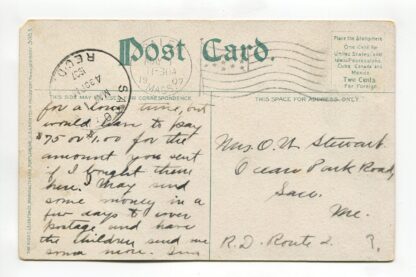 Post Card.
Place the Stamp Here
One Cent for
United States and
Island Possessions,
Cuba, Canada and
Mexico.
Two Cents
for Foreign.
REC'D.
SACO
1-30 A
MASS
THIS SIDE MAY FOR CORRESPONDENCE
THIS SPACE FOR ADDRESS ONLY.
for a long time, but
would have to pay
$.75 or 1.00 for the
amount you sent
if I bought them
here. I may send
some money in a
few days to cover
postage and have
the children send me
some more.
Mrs. O. W. Stewart
Ocean Park Road
Saco.
Me.
R.D. Route 2. ?